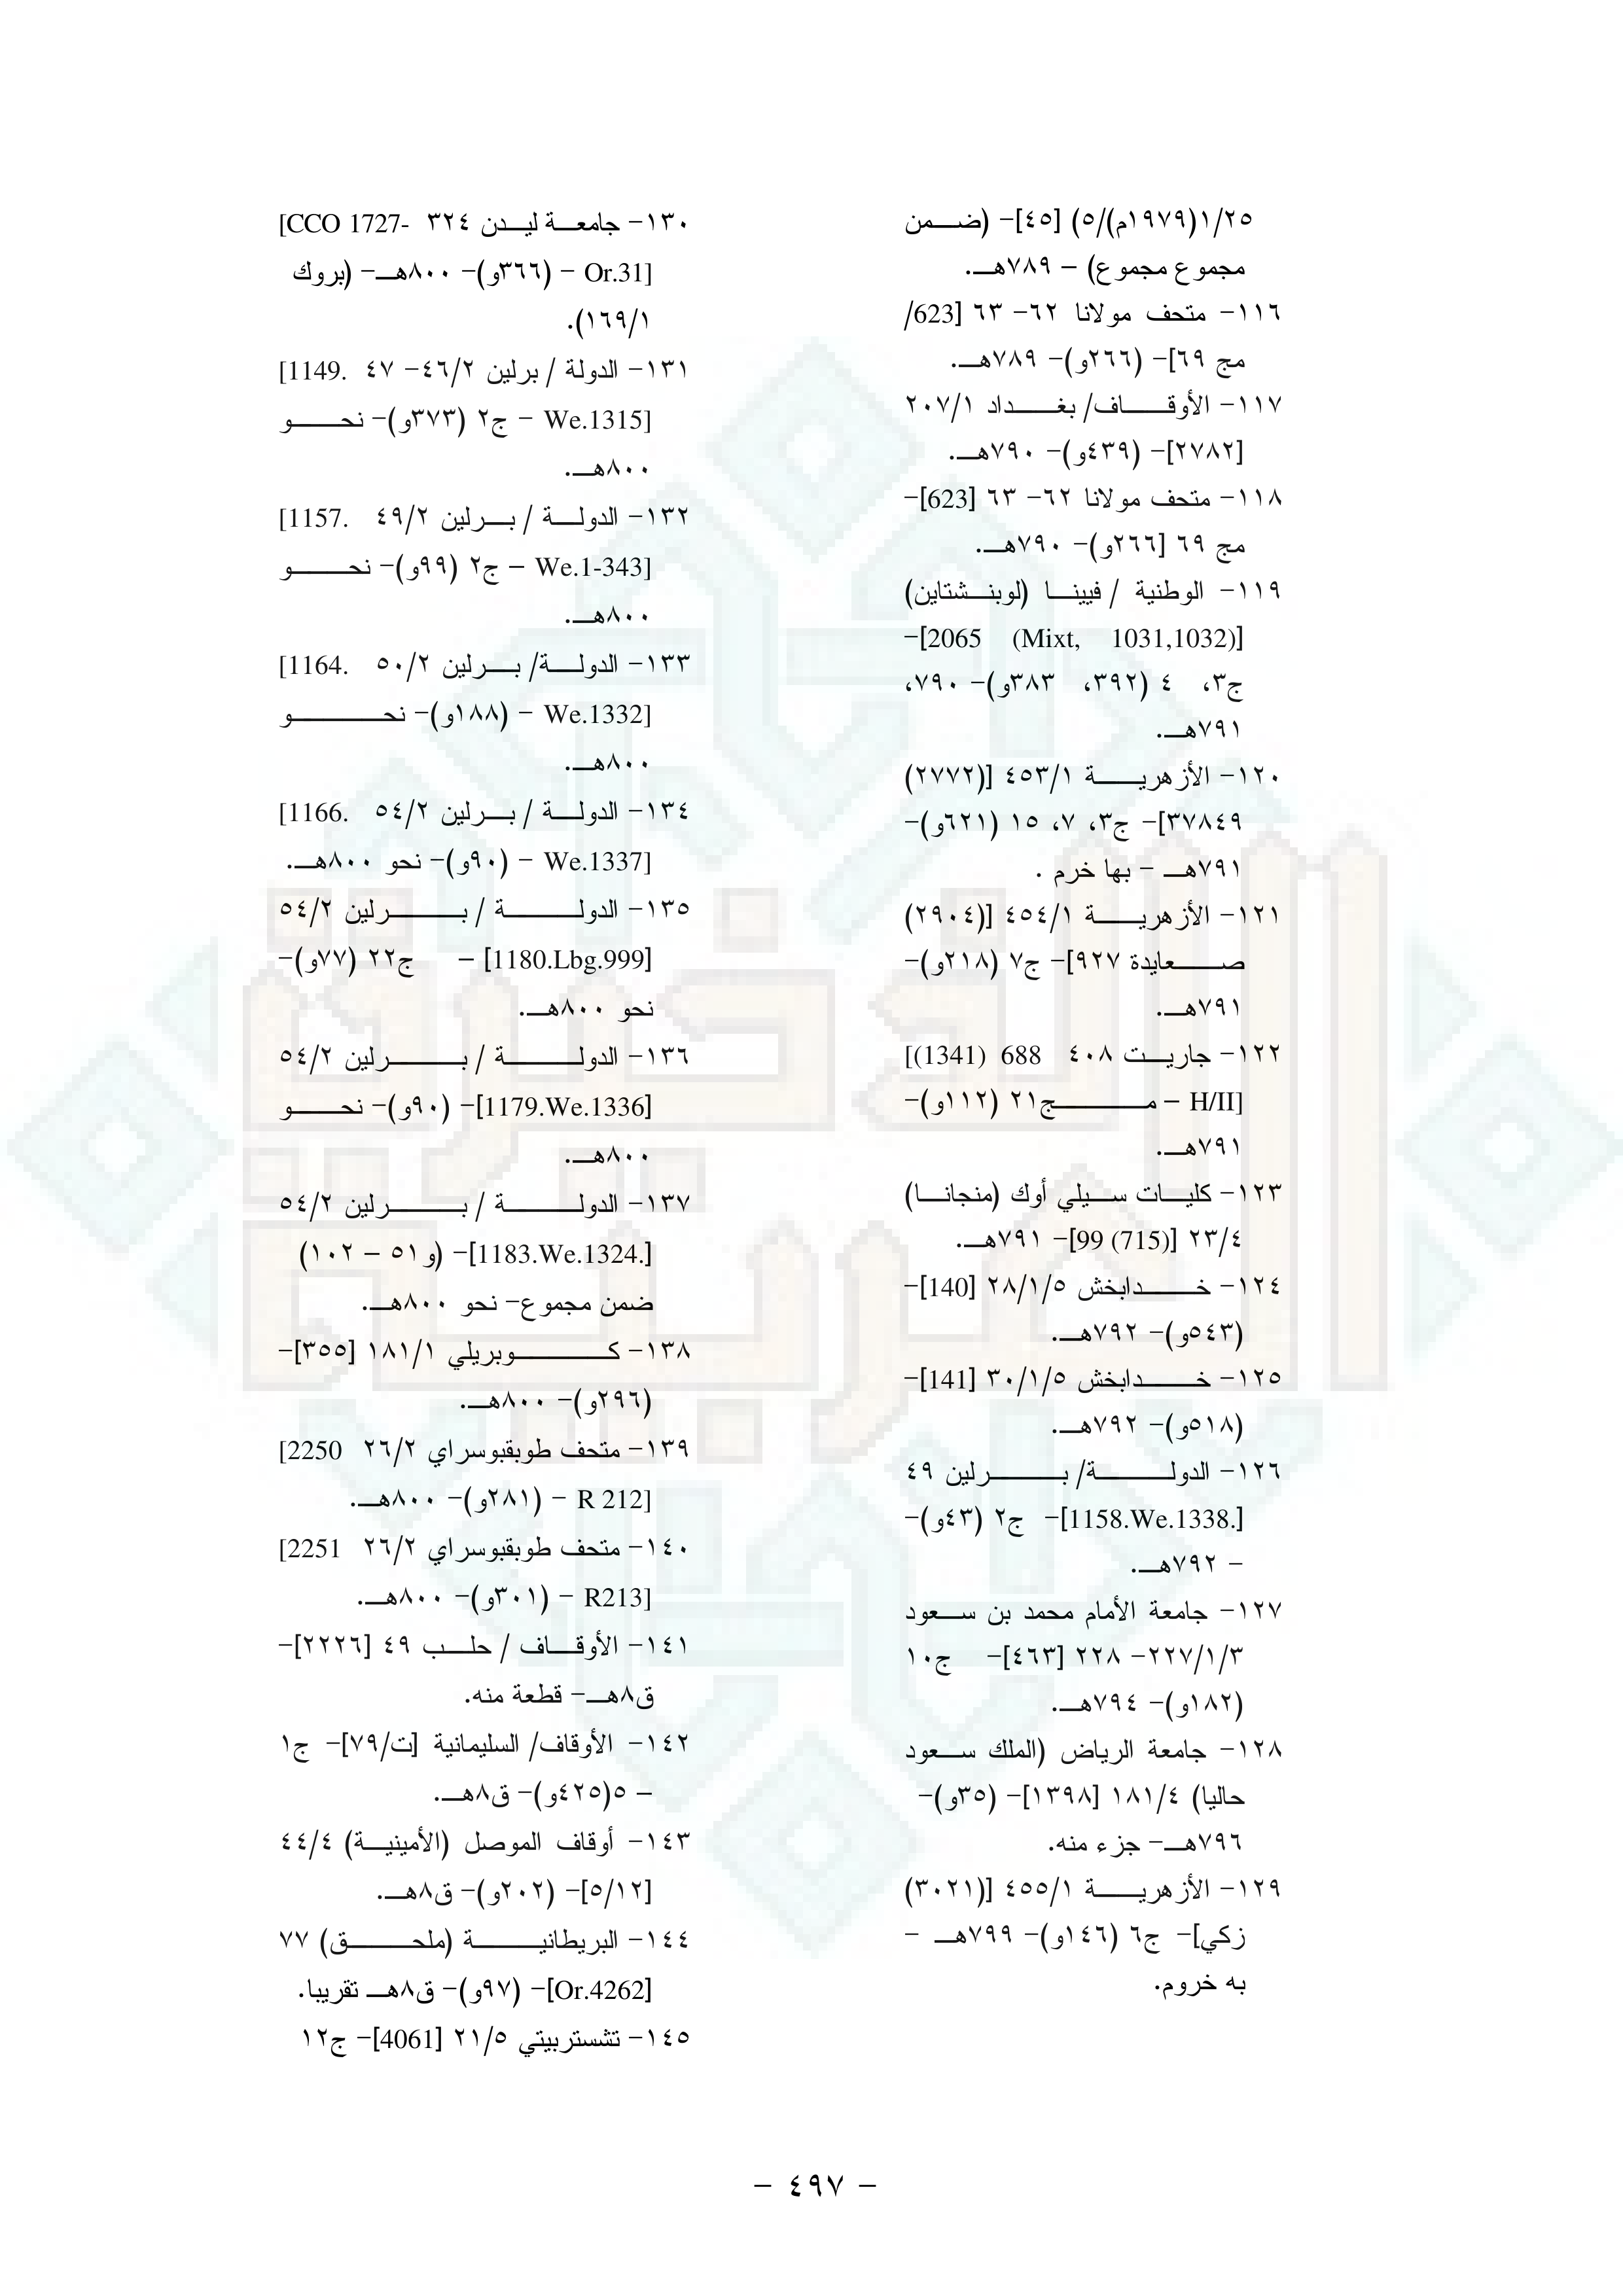 ١/٢٥(١٩٧٩م)/٥) [٤٥]- (ضمن
مجموع مجموع) – ٧٨٩هـ.
١١٦- متحف مولانا ٦٢- ٦٣ [623/
مج ٦٩]- (٢٦٦و)- ٧٨٩هـ.
١١٧- الأوقاف/ بغداد ٢٠٧/١
[٢٧٨٢]- (٤٣٩و)- ٧٩٠هـ.
١١٨- متحف مولانا ٦٢- ٦٣ [623]-
مج ٦٩ [٢٦٦و)- ٧٩٠هـ.
١١٩- الوطنية / فيينا (لوبنشتاين)
[2065 (Mixt, 1031,1032)]-
ج٣، ٤ (٣٩٢، ٣٨٣و)- ٧٩٠،
٧٩١هـ.
١٢٠- الأزهرية ٤٥٣/١ [(٢٧٧٢)
٣٧٨٤٩]- ج٣، ٧، ١٥ (٦٢١و)-
٧٩١هـ - بها خرم .
١٢١- الأزهرية ٤٥٤/١ [(٢٩٠٤)
صعايدة ٩٢٧]- ج٧ (٢١٨و)-
٧٩١هـ.
١٢٢- جاريت ٤٠٨ [(1341) 688
H/II] – مج٢١ (١١٢و)-
٧٩١هـ.
١٢٣- كليات سيلي أوك (منجانا)
٢٣/٤ [99 (715)]- ٧٩١هـ.
١٢٤- خدابخش ٢٨/١/٥ [140]-
(٥٤٣و)- ٧٩٢هـ.
١٢٥- خدابخش ٣٠/١/٥ [141]-
(٥١٨و)- ٧٩٢هـ.
١٢٦- الدولة/ برلين ٤٩
[1158.We.1338.]- ج٢ (٤٣و)-
- ٧٩٢هـ.
١٢٧- جامعة الأمام محمد بن سعود
٢٢٧/١/٣- ٢٢٨ [٤٦٣]- ج١٠
(١٨٢و)- ٧٩٤هـ.
١٢٨- جامعة الرياض (الملك سعود
حاليا) ١٨١/٤ [١٣٩٨]- (٣٥و)-
٧٩٦هـ- جزء منه.
١٢٩- الأزهرية ٤٥٥/١ [(٣٠٢١)
زكي]- ج٦ (١٤٦و)- ٧٩٩هـ -
به خروم.
١٣٠- جامعة ليدن ٣٢٤ [CCO 1727-
Or.31] – (٣٦٦و)- ٨٠٠هـ- (بروك
١٦٩/١).
١٣١- الدولة / برلين ٤٦/٢- ٤٧ [1149.
We.1315] – ج٢ (٣٧٣و)- نحو
٨٠٠هـ.
١٣٢- الدولة / برلين ٤٩/٢ [1157.
We.1-343] – ج٢ (٩٩و)- نحو
٨٠٠هـ.
١٣٣- الدولة/ برلين ٥٠/٢ [1164.
We.1332] – (١٨٨و)- نحو
٨٠٠هـ.
١٣٤- الدولة / برلين ٥٤/٢ [1166.
We.1337] – (٩٠و)- نحو ٨٠٠هـ.
١٣٥- الدولة / برلين ٥٤/٢
[1180.Lbg.999] – ج٢٢ (٧٧و)-
نحو ٨٠٠هـ.
١٣٦- الدولة / برلين ٥٤/٢
[1179.We.1336]- (٩٠و)- نحو
٨٠٠هـ.
١٣٧- الدولة / برلين ٥٤/٢
[1183.We.1324.]- (و٥١ – ١٠٢)
ضمن مجموع- نحو ٨٠٠هـ.
١٣٨- كوبريلي ١٨١/١ [٣٥٥]-
(٢٩٦و)- ٨٠٠هـ.
١٣٩- متحف طوبقبوسراي ٢٦/٢ [2250
R 212] – (٢٨١و)- ٨٠٠هـ.
١٤٠- متحف طوبقبوسراي ٢٦/٢ [2251
R213] – (٣٠١و)- ٨٠٠هـ.
١٤١- الأوقاف / حلب ٤٩ [٢٢٢٦]-
ق٨هـ- قطعة منه.
١٤٢- الأوقاف/ السليمانية [ت/٧٩]- ج١
– ٥(٤٢٥و)- ق٨هـ.
١٤٣- أوقاف الموصل (الأمينية) ٤٤/٤
[٥/١٢]- (٢٠٢و)- ق٨هـ.
١٤٤- البريطانية (ملحق) ٧٧
[Or.4262]- (٩٧و)- ق٨هـ تقريبا.
١٤٥- تشستربيتي ٢١/٥ [4061]- ج١٢
- ٤٩٧ -